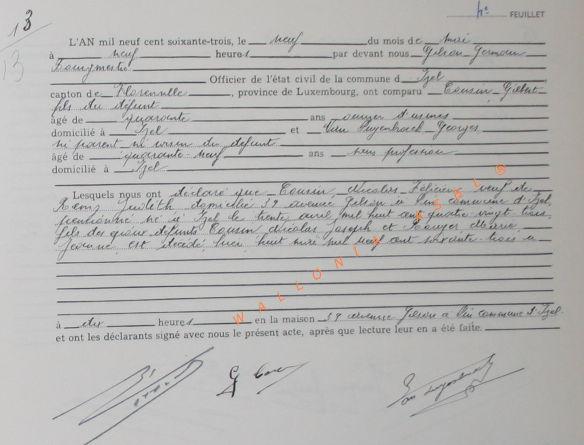 4e FEUILLET
13
13
L'AN mil neuf cent soixante-trois, le neuf du mois de mai
à neuf heures par devant nous Gilson Germain
Bourgmestre Officier de l'état civil de la commune d'Izel
canton de Florenville, province de Luxembourg, ont comparu Cousin Gilbert
fils du défunt
âgé de quarante ans ouvrier d'usines
domicilié à Izel et Van Georges
ni parent ni voisin du défunt
âgé de quarante-neuf ans sans profession
domicilié à Izel
Lesquels nous ont déclaré que Cousin, Nicolas Félicien veuf de
Judith domicilié 39 avenue Gilson à Pin commune d'Izel
pensionné né à Izel le trente avril mil huit cent quatre vingt trois
fils des époux défunts Cousin, Nicolas Joseph et Marie
Jeanne est décédé hier huit mai mil neuf cent soixante trois à
à dix heures en la maison 39 avenue Gilson à Pin commune d'Izel
et ont les déclarants signé avec nous le présent acte, après que lecture leur en a été faite.
WALLONIA ASBL ®